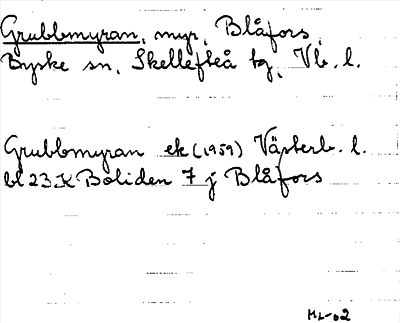 Grubbmyran, myr, Blåfors,
Byske sn, Skellefteå tg, Vb. l.
Grubbmyran ek (1959) Västerb. l.
bl 23 K Boliden 7 j Blåfors
ML-02